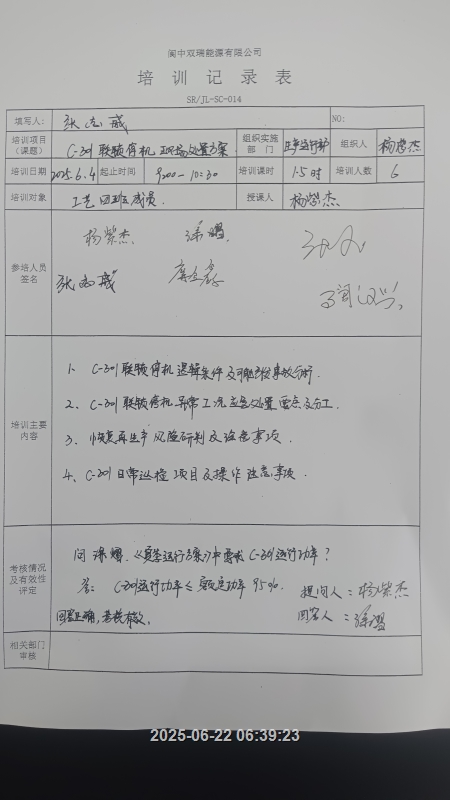 阆中双瑞能源有限公司
培训记录表
SR/JL-SC-014
填写人: 张志威 NO:
培训项目(课题) C-301联锁停机现场处置方案 组织实施部门 生产运行部 组织人 杨紫杰
培训日期 2025.6.4 起止时间 9:00-10:30 培训课时 1.5时 培训人数 6
培训对象 工艺四班成员 授课人 杨紫杰
参培人员签名
杨紫杰
张志威
培训主要内容
1、C-301联锁停机逻辑条件及可能导致事故分析.
2、C-301联锁停机异常工况应急处置重点及分工.
3、恢复再生产风险研判及注意事项.
4、C-301日常巡检项目及操作注意事项.
考核情况及有效性评定
问 涂熠,《夏季运行方案》中要求C-301运行功率?
答: C-301运行功率≤额定功率95%.
提问人: 杨紫杰
回答正确,考核有效.
回答人: 涂熠
相关部门审核
2025-06-22 06:39:23